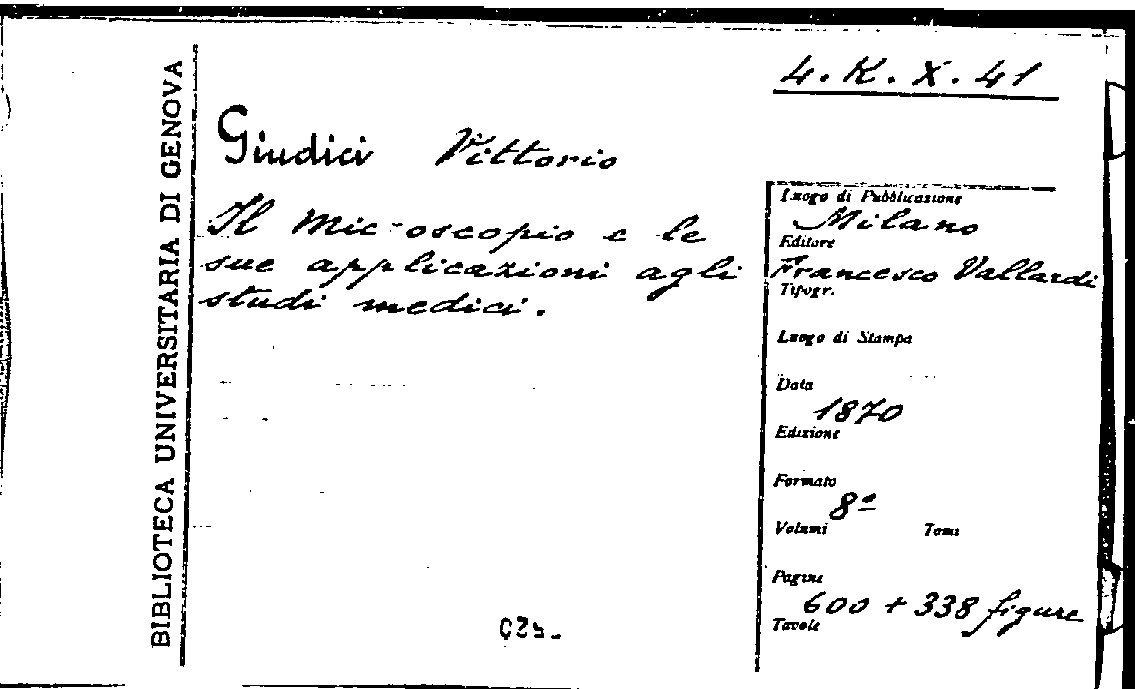 BIBLIOTECA UNIVERSITARIA DI GENOVA
4. K. X. 41
Giudici Vittorio
Il Microscopio e le
sue applicazioni agli
studi medici.
Luogo di Pubblicazione
Milano
Editore
Francesco Vallardi
Tipogr.
Luogo di Stampa
Data
1870
Edizione
Formato
8º
Volumi Tomi
Pagine
600 + 338 figure
Tavole